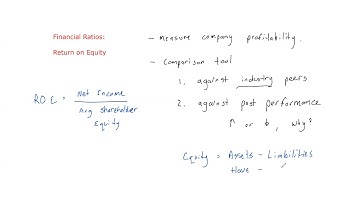 Financial Ratios:
Return on Equity
ROE = Net Income
Avg Shareholder
Equity
- Measure company profitability.
- Comparison tool
1. against industry peers
2. against past performance
↑ or ↓, why?
Equity = Assets - Limbilities
Have -